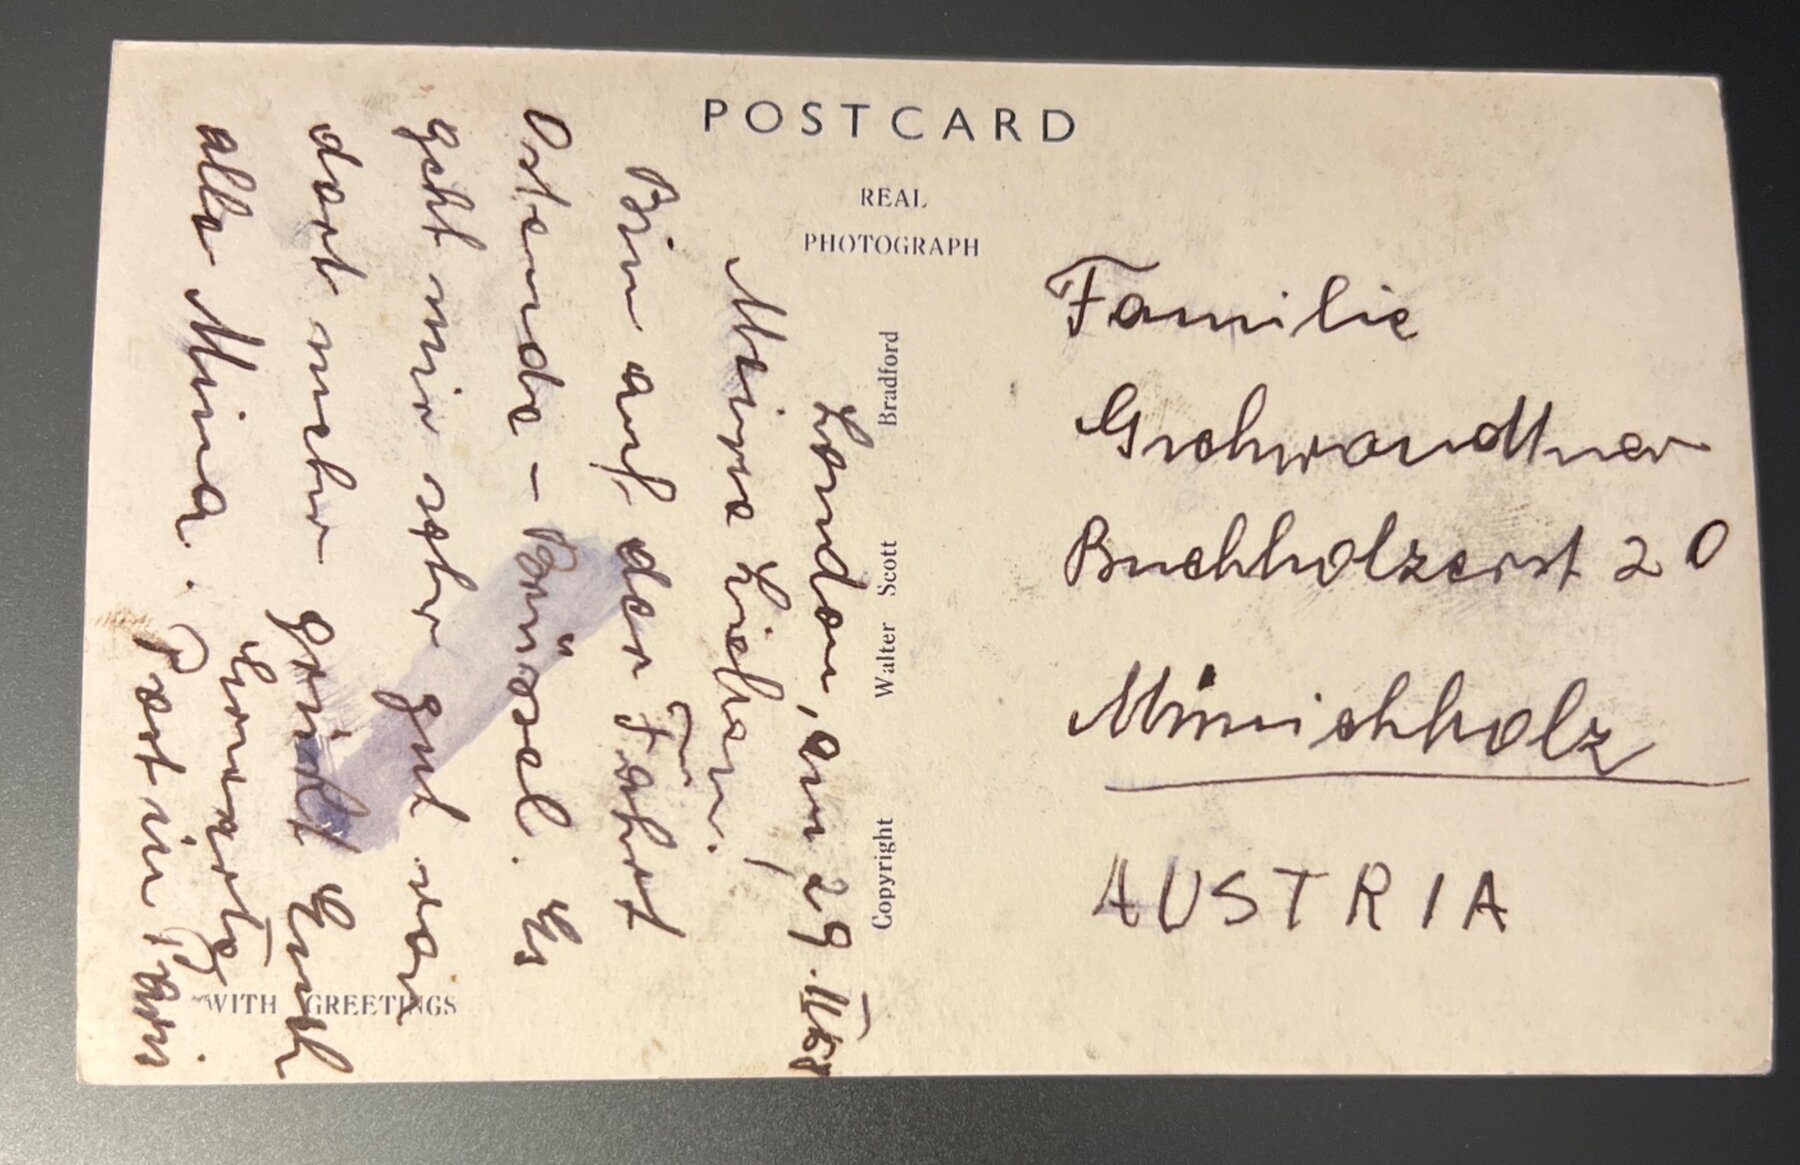 POSTCARD
REAL
PHOTOGRAPH
Copyright Walter Scott Bradford
WITH GREETINGS
London, am 29.
Meine Lieben!
Bin auf der Fahrt
Ostende - Brüssel. Es
geht mir sehr gut von
dort mehr grüßt Euch
alle Mina.
Erwarte
Post in Paris
Familie
Gschwandtner
Buchholzerst 20
Münichholz
AUSTRIA